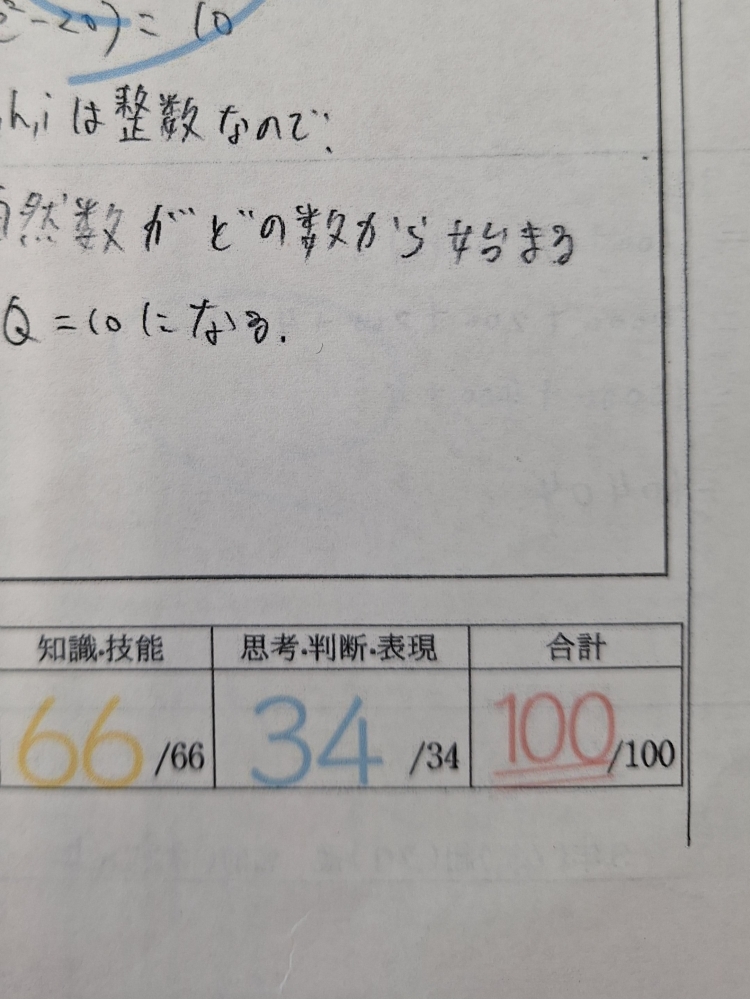 ²-20) = 10
,h,iは整数なので、
然数がどの数から始まる
Q=10になる.
知識・技能 思考・判断・表現 合計
66/66 34/34 100/100